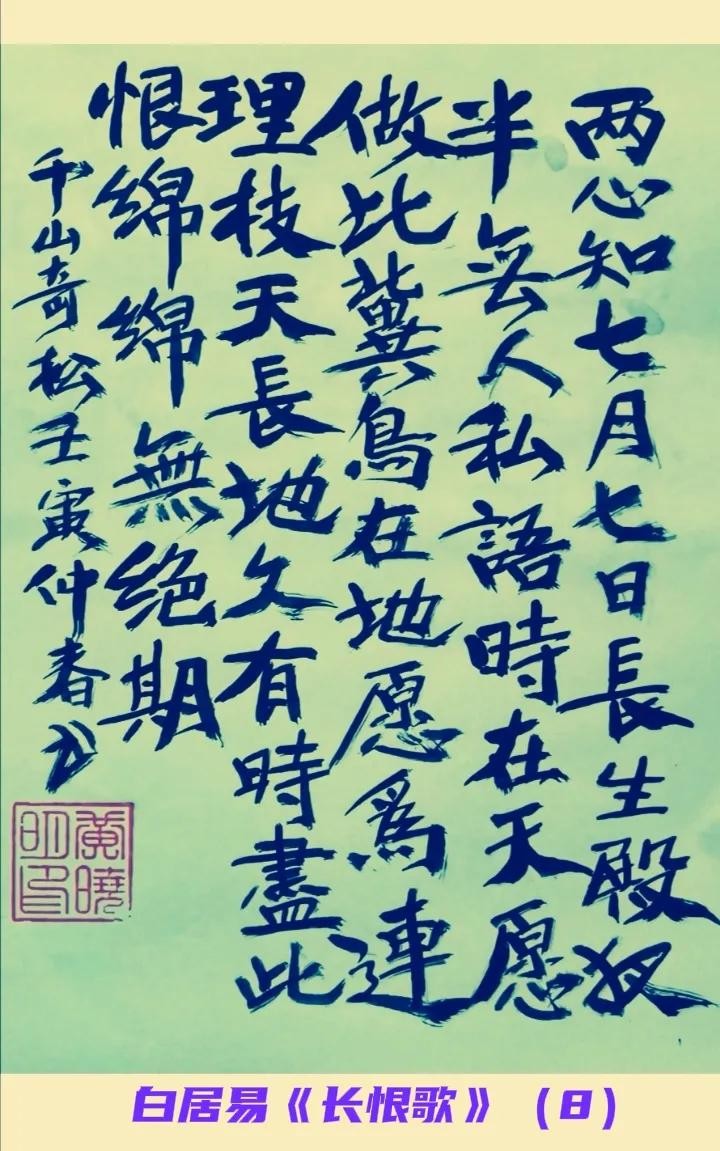 两心知七月七日長生殿夜
半無人私語時在天愿
做比冀鳥在地愿爲連
理枝天長地久有時盡此
恨綿綿無绝期
千山奇松壬寅仲春
黄曉
明印
白居易《长恨歌》（8）